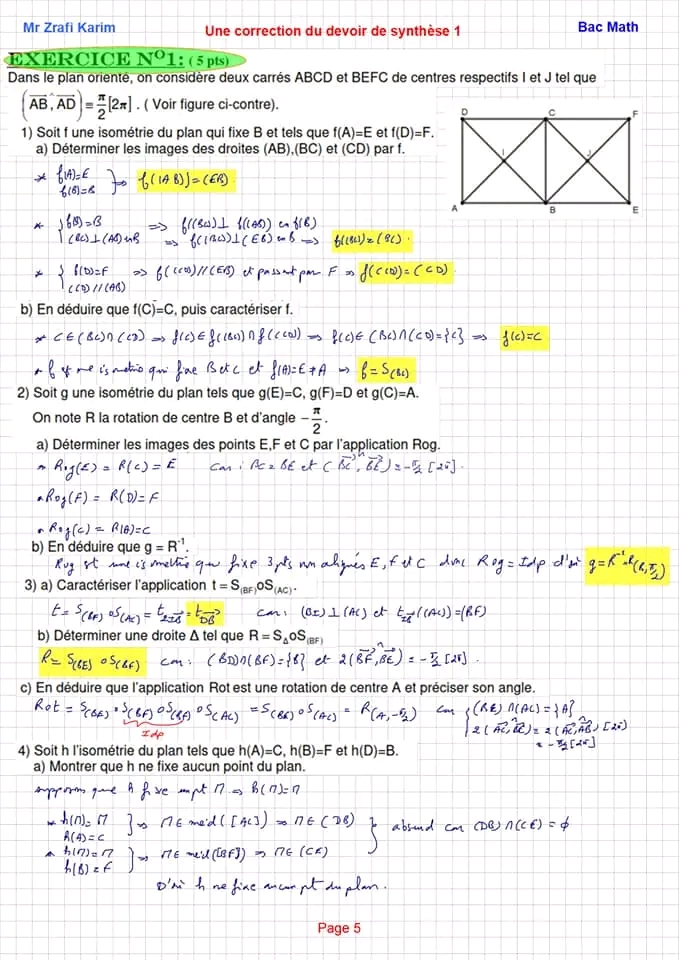 Mr Zrafi Karim
Une correction du devoir de synthèse 1
Bac Math
EXERCICE N°1: ( 5 pts)
Dans le plan orienté, on considère deux carrés ABCD et BEFC de centres respectifs I et J tel que
(AB, AD) ≡ π/2 [2π] . ( Voir figure ci-contre).
1) Soit f une isométrie du plan qui fixe B et tels que f(A)=E et f(D)=F.
a) Déterminer les images des droites (AB),(BC) et (CD) par f.
D C F
I J
A B E
* f(A)=E
f(B)=B } => f((AB))=(EB)
* { f(B)=B => f((BC)) ⊥ f((AB)) en f(B)
(BC)⊥(AB) en B => f((BC))⊥(EB) en B => f((BC))=(BC).
* { f(D)=F => f((CD))//(EB) et passant par F => f((CD))=(CD)
(CD)//(AB)
b) En déduire que f(C)=C, puis caractériser f.
* C∈(BC)∩(CD) => f(C)∈f((BC))∩f((CD)) => f(C)∈(BC)∩(CD)={C} => f(C)=C
* f est une isométrie qui fixe B et C et f(A)=E≠A => f=S(BC)
2) Soit g une isométrie du plan tels que g(E)=C, g(F)=D et g(C)=A.
On note R la rotation de centre B et d'angle −π/2.
a) Déterminer les images des points E,F et C par l'application Rog.
* Rog(E) = R(C) = E car : BC=BE et (BC, BE) ≡ -π/2 [2π].
* Rog(F) = R(D) = F
* Rog(C) = R(A)=C
b) En déduire que g = R⁻¹.
Rog est une isométrie qui fixe 3 pts non alignés E, F et C donc Rog = Idp d'où g=R⁻¹=R(B,π/2)
3) a) Caractériser l'application t = S(BF)oS(AC).
t = S(BF) o S(AC) = t2IB = tDB car : (BI)⊥(AC) et tIB((AC))=(BF)
b) Déterminer une droite Δ tel que R = SΔoS(BF)
R= S(BE) o S(BF) car : (BE)∩(BF)={B} et 2(BF, BE) ≡ -π/2 [2π].
c) En déduire que l'application Rot est une rotation de centre A et préciser son angle.
Rot = S(BE) o S(BF) o S(BF) o S(AC) = S(BE) o S(AC) = R(A,-π/2) car { (BE)∩(AC)={A}
2(AC, BE) ≡ 2(AC, AB) [2π]
≡ -π/2 [2π]
Idp
4) Soit h l'isométrie du plan tels que h(A)=C, h(B)=F et h(D)=B.
a) Montrer que h ne fixe aucun point du plan.
supposons que h fixe un pt M => h(M)=M
* h(M)=M
h(A)=C } => M∈ méd([AC]) => M∈(DB)
* h(M)=M
h(B)=F } => M∈ méd([BF]) => M∈(CE)
} absurd car (DB)∩(CE)=∅
D'où h ne fixe aucun pt du plan.
Page 5